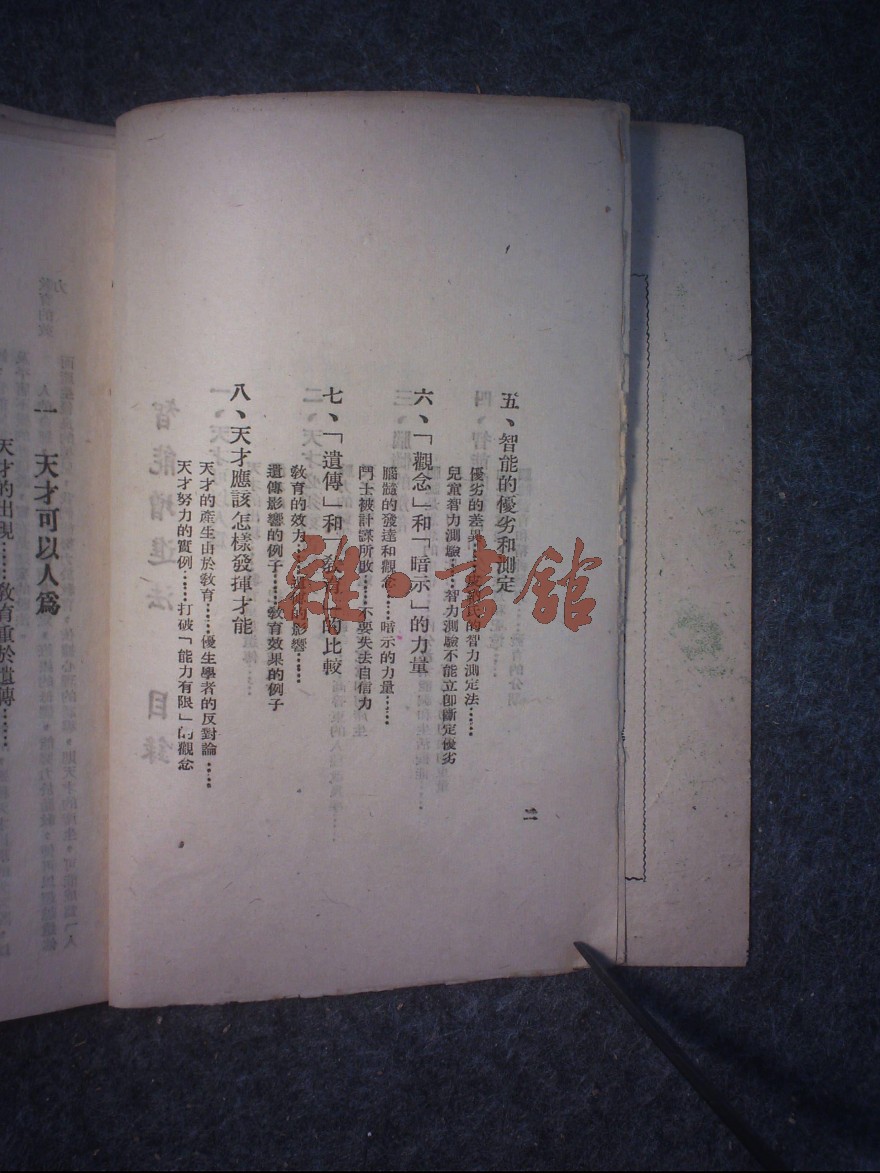 五、智能的優劣和測定
優劣的差異……皮奈氏的智力測定法……
兒童智力測驗……智力測驗不能立卽斷定優劣
六、「觀念」和「暗示」的力量
腦髓的發達和觀念……暗示的力量……
鬥士被計謀所敗……不要失去自信力
七、「遺傳」和「教育」的比較
教育的效力……遺傳的影響……
遺傳影響的例子……教育效果的例子
八、天才應該怎樣發揮才能
天才的產生由於敎育……優生學者的反對論……
天才努力的實例……打破「能力有限」的觀念
二
一 天才可以人爲
天才的出現……敎育重於遺傳……
雜·書館